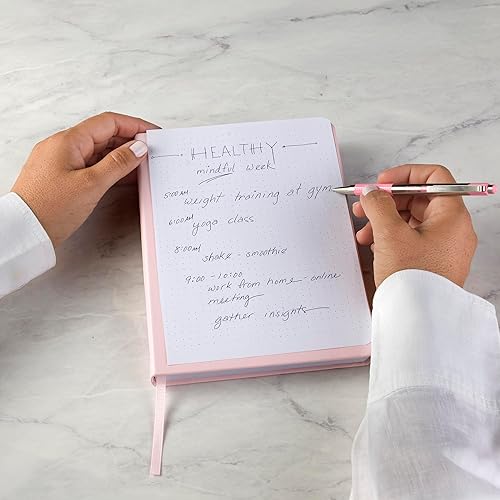 HEALTHY
mindful week
5:00AM
weight training at gym
6:00AM
yoga class
8:00AM
shake - smoothie
9:00 - 10:00
work from home - online
meeting
gather insights